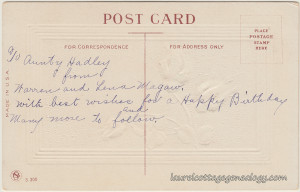 POST CARD
FOR CORRESPONDENCE
FOR ADDRESS ONLY
PLACE
POSTAGE
STAMP
HERE
MADE IN U.S.A.
To Aunty Hadley
from
Warren and Lena Magaw.
With best wishes for a Happy Birthday
and
Many more to follow.
laurelcottagegenealogy.com